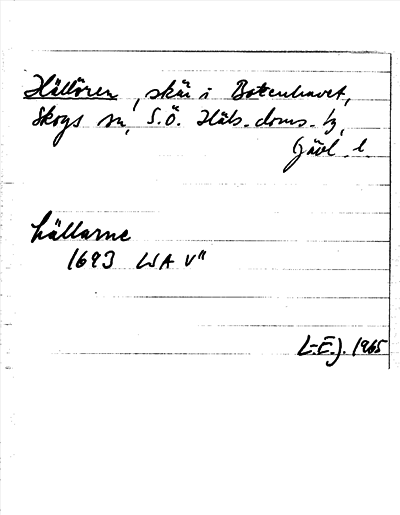 Hällören, skär i Bottenhavet,
Skogs sn, S.Ö. Häls. doms. tg,
Gävl. l.
hällarne
1693 LSA V"
L-E.J. 1965